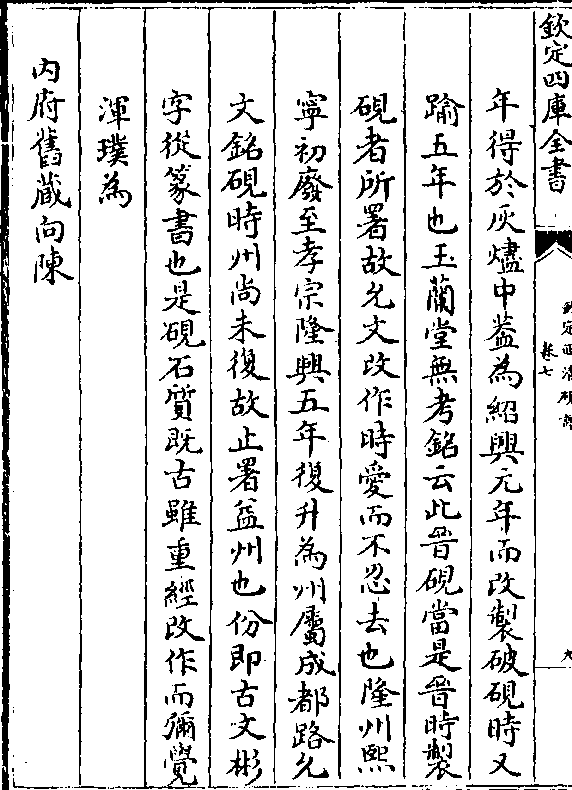 欽定四庫全書
欽定西清硯譜
卷七
九
年得於灰燼中葢為紹興元年而改製破硯時又
踰五年也玉蘭堂無考銘云此晉硯當是晉時製
硯者所署故允文改作時愛而不忍去也隆州熙
寧初廢至孝宗隆興五年復升為州屬成都路允
文銘硯時州尚未復故止署益州也份即古文彬
字從篆書也是硯石質既古雖重經改作而彌覺
渾璞為
內府舊蔵向陳